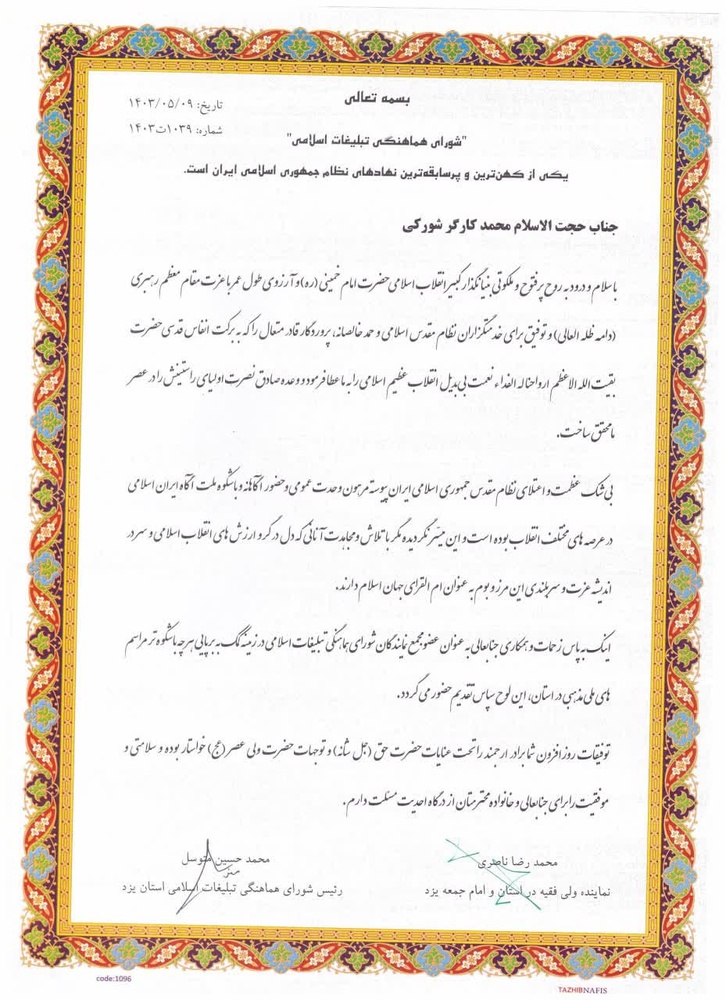 بسمه تعالی
تاریخ: ۱۴۰۳/۰۵/۰۹
شماره: ۱۰۳۹ت۱۴۰۳
"شورای هماهنگی تبلیغات اسلامی"
یکی از کهن‌ترین و پرسابقه‌ترین نهادهای نظام جمهوری اسلامی ایران است.
جناب حجت الاسلام محمد کارگر شورکی
با سلام و درود به روح پرفتوح و ملکوتی بنیانگذار کبیر انقلاب اسلامی حضرت امام خمینی (ره) و آرزوی طول عمر با عزت مقام معظم رهبری
(دامه ظله العالی) و توفیق برای خدمتگزاران نظام مقدس اسلامی و حمد خالصانه، پروردگار قادر متعال را که به برکت انفاس قدسی حضرت
بقیت الله الاعظم ارواحناله الفداء نعمت بی بدیل انقلاب عظیم اسلامی را به ما عطا فرمود و وعده صادق نصرت اولیای راستینش را در عصر
ما محقق ساخت.
بی شک عظمت و اعتلای نظام مقدس جمهوری اسلامی ایران پیوسته مرهون وحدت عمومی و حضور آگاهانه و باشکوه ملت آگاه ایران اسلامی
در عرصه های مختلف انقلاب بوده است و این میسر نگردیده مگر با تلاش و مجاهدت آنانی که دل در گرو ارزش های انقلاب اسلامی و سر در
اندیشه عزت و سربلندی این مرز و بوم به عنوان ام القرای جهان اسلام دارند.
اینک به پاس زحمات و همکاری جنابعالی به عنوان عضو مجمع نمایندگان شورای هماهنگی تبلیغات اسلامی در زمینه کمک به برپایی هر چه باشکوه تر مراسم
های ملی مذهبی در استان، این لوح سپاس تقدیم حضور می گردد.
توفیقات روز افزون شما برادر ارجمند را تحت عنایات حضرت حق (جل شانه) و توجهات حضرت ولی عصر (عج) خواستار بوده و سلامتی و
موفقیت را برای جنابعالی و خانواده محترمتان از درگاه احدیت مسئلت دارم.
محمد رضا ناصری
نماینده ولی فقیه در استان و امام جمعه یزد
محمد حسین متوسل
رئیس شورای هماهنگی تبلیغات اسلامی استان یزد
code:1096
TAZHIBNAFIS